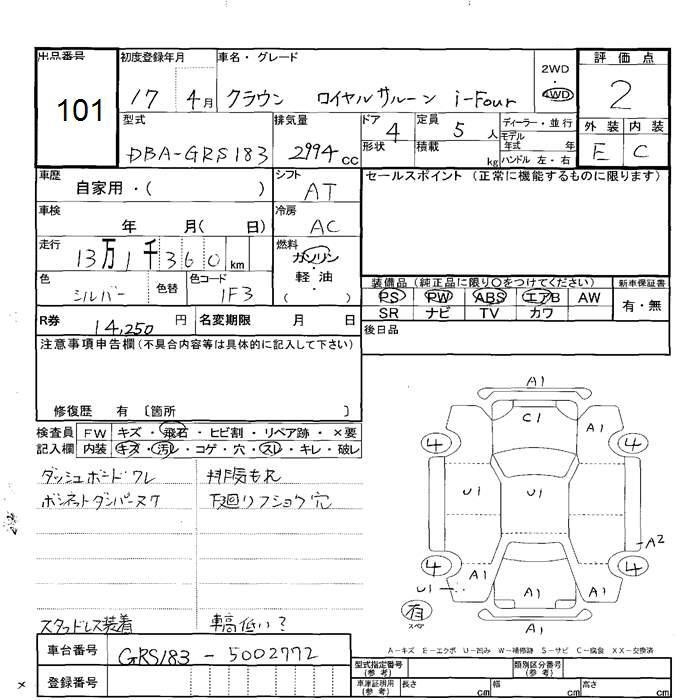 出品番号 初度登録年月 車名・グレード 2WD・4WD 評価点
101 17 4月 クラウン ロイヤルサルーン i-Four 2
型式 排気量 ドア形状 4 定員 5人 ディーラー・並行 外装 内装
DBA-GRS183 2994cc 積載 kg モデル年式 E C
ハンドル 左・右
車歴 自家用・( ) シフト AT セールスポイント (正常に機能するものに限ります)
車検 年 月( 日) 冷房 AC
走行 13万1千360km 燃料 ガソリン・軽油( )
色 シルバー 色替 色コード 1F3
装備品(純正品に限り○をつけてください) 新車保証書
PS PW ABS エアB AW 有・無
SR ナビ TV カワ
R券 14,250円 名変期限 月 日 後日品
注意事項申告欄(不具合内容等は具体的に記入して下さい)
修復歴 有〔箇所 〕
検査員記入欄 FW キズ・飛石・ヒビ割・リペア跡・×要
内装 キズ・汚レ・コゲ・穴・スレ・キレ・破レ
ダッシュボードワレ 排気もれ
ボンネットダンパーヌケ 下廻りフショク穴
スタッドレス装着 車高低い?
A1
C1 A1
4 4
U1 U1
A2
4 4
A1 A1 A1
U1
有
スペア
A1
A-キズ E-エクボ U-凹み W-補修跡 S-サビ C-腐食 XX-交換済
車台番号 GRS183-5002772
登録番号
型式指定番号(参考) 類別区分番号(参考)
車庫証明用(参考) 長さ cm 幅 cm 高さ cm